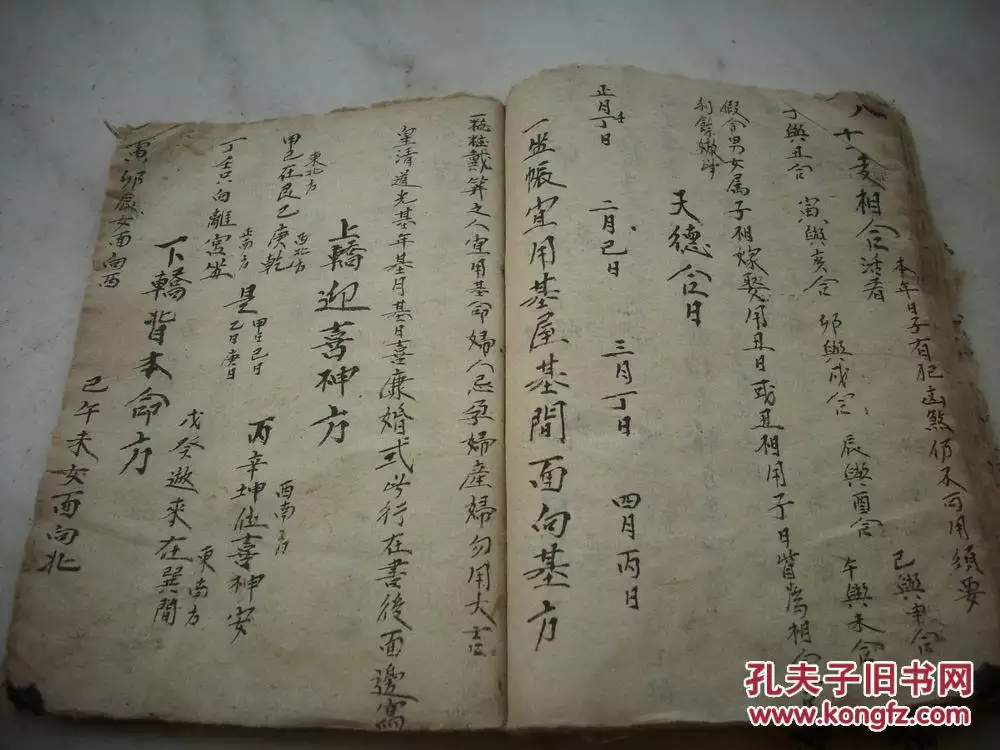 八 十二支相合活看
本年日子有犯凶煞仍不可用須要
子與丑合 寅與亥合 卯與戌合 辰與酉合 午與未合
巳與申合
假令男女属子相嫁娶用丑日或丑相用子日皆為相合
利餘倣此
天德合日
正月丁日 二月巳日 三月丁日 四月丙日
一坐帳宜用基屋基間面向基方
一梳粧戴笄之人宜用基命婦人忌孕婦產婦勿用大吉
皇清道光基年基月基日喜庚婚式此行在書後面邊寫
上轎迎喜神方
東北方 西北方
甲己在艮乙庚乾
是 甲日己日 乙日庚日
丙辛坤位喜神安
西南方
丁壬只向離宮坐
正南方
戊癸遊來在巽間
東南方
下轎背本命方
寅卯辰女面向西
巳午未女面向北
孔夫子旧书网
www.kongfz.com